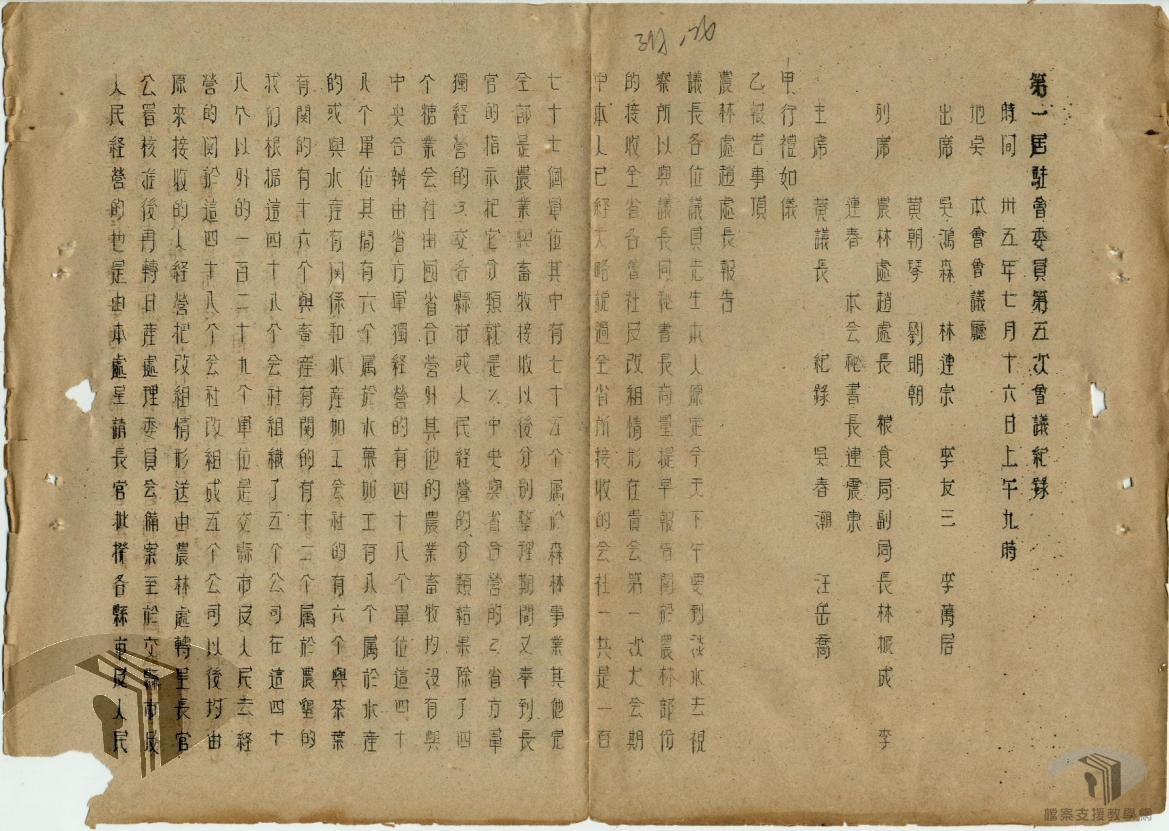 第一屆駐會委員第五次會議紀錄
時间 卅五年七月十六日上午九時
地奌 本會會議廳
出席 吳鴻森 林連宗 李友三 李萬居
黄朝琴 劉明朝
列席 農林處趙處長 粮食局副局長林振成 李
連春 本会秘書長連震東
主席 黄議長 紀錄 吳春潮 汪岳喬
甲行禮如儀
乙報告事項
農林處趙處長報告
議長各位議員先生本人原定今天下午要到淡水去視
察所以與議長同秘書長商量提早報告関於農林部份
的接收全省各會社及改組情形在貴会第一次大会期
中本人已経大略説過全省所接收的会社一共是一百
七十七個單位其中有七十五个属於森林事業其他完
全部是農業與畜牧接收以後分別整理期間又奉到長
官的指示把它分類就是1.中央與省合營的2.省方單
獨経營的3.交各縣市或人民経營的分類結果除了四
个糖業会社由國省合營外其他的農業畜牧均没有與
中央合辦由省方單獨経營的有四十八个單位這四十
八个單位其間有六个属於水菓加工有八个属於水產
的或與水產有関係和水產加工会社的有六个與茶葉
有関的有十六个與畜產有関的有十二个属於農墾的
我们根据這四十八个会社組織了五个公司在這四十
八个以外的一百二十九个單位是交縣市及人民去経
營的関於這四十八个会社改組成五个公司以後均由
原來接收的人経營把改組情形送由農林處轉呈長官
公署核准後再轉日產處理委員会備案至於交縣市及
人民経營的也是由本處呈請長官批撥各縣市及人民
檔案支援教學網